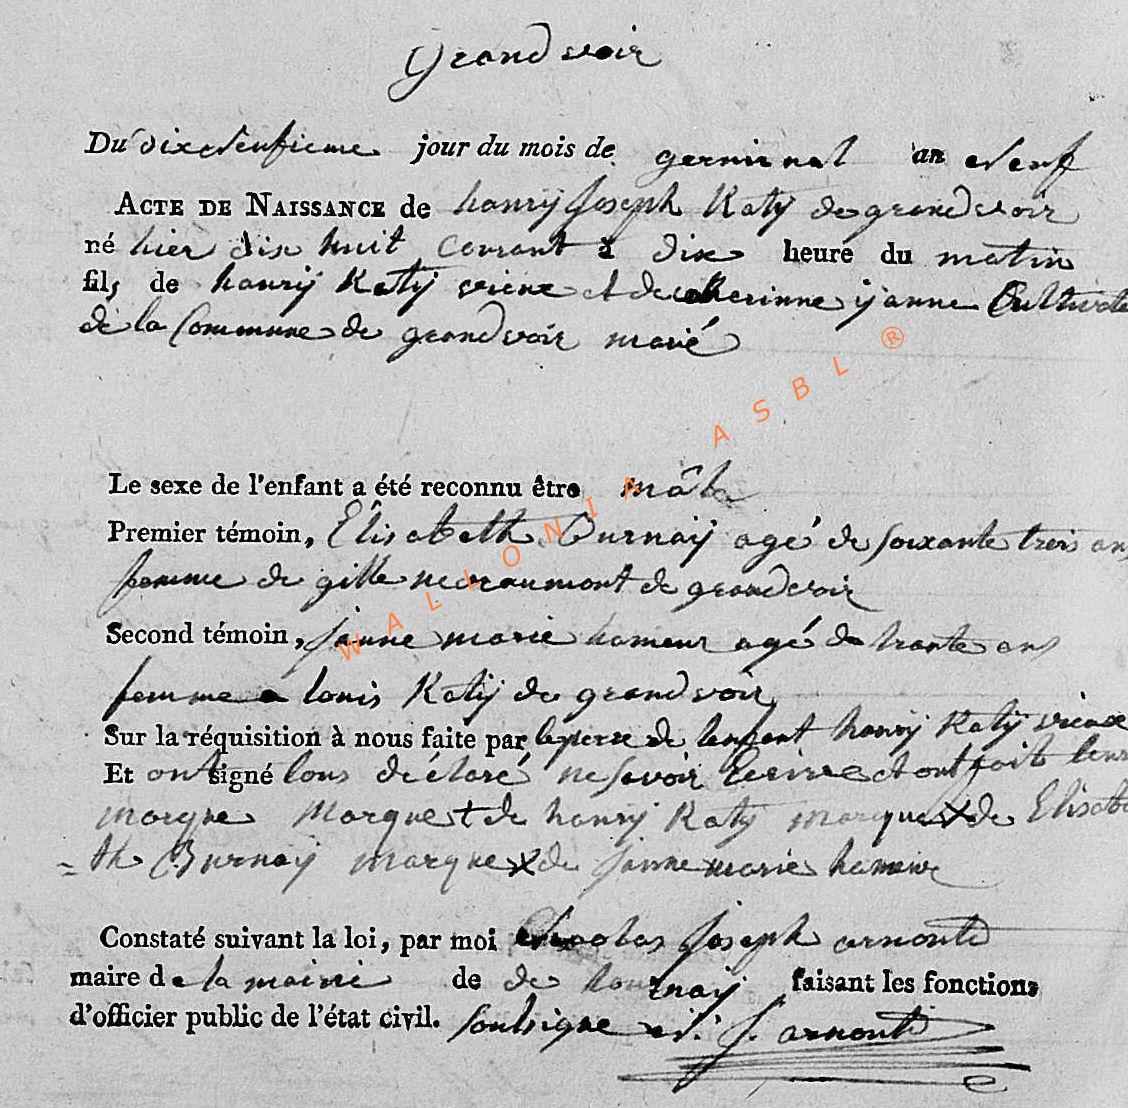 Grandvoir
Du dixneufieme jour du mois de germinal an neuf
ACTE DE NAISSANCE de henrij Joseph Katij de grandvoir
né hier dix huit courant à dix heure du matin
fils de henrij Katij et de catherinne ijanne Cultivate
de la Commune de grandvoir marié
Le sexe de l'enfant a été reconnu être mâle
Premier témoin, Elisabeth Burnaij agé de soixante treis ans
femme de gille de grandvoir
Second témoin, janne marie hameur agé de trante ans
femme a louis Katij de grandvoir
Sur la réquisition à nous faite par le perre de lenfant henrij Katij
Et ont signé tous déclaré ne savoir Ecrire et ont fait leur
marque Marque + de henrij Katij marque X de Elisabe
= th Burnaij marque X de janne marie
Constaté suivant la loi, par moi Nicolas Joseph arnould
maire de la mairie de de tournaij faisant les fonctions
d'officier public de l'état civil. soulsigne n. j. arnould
WALLONIA ASBL ®